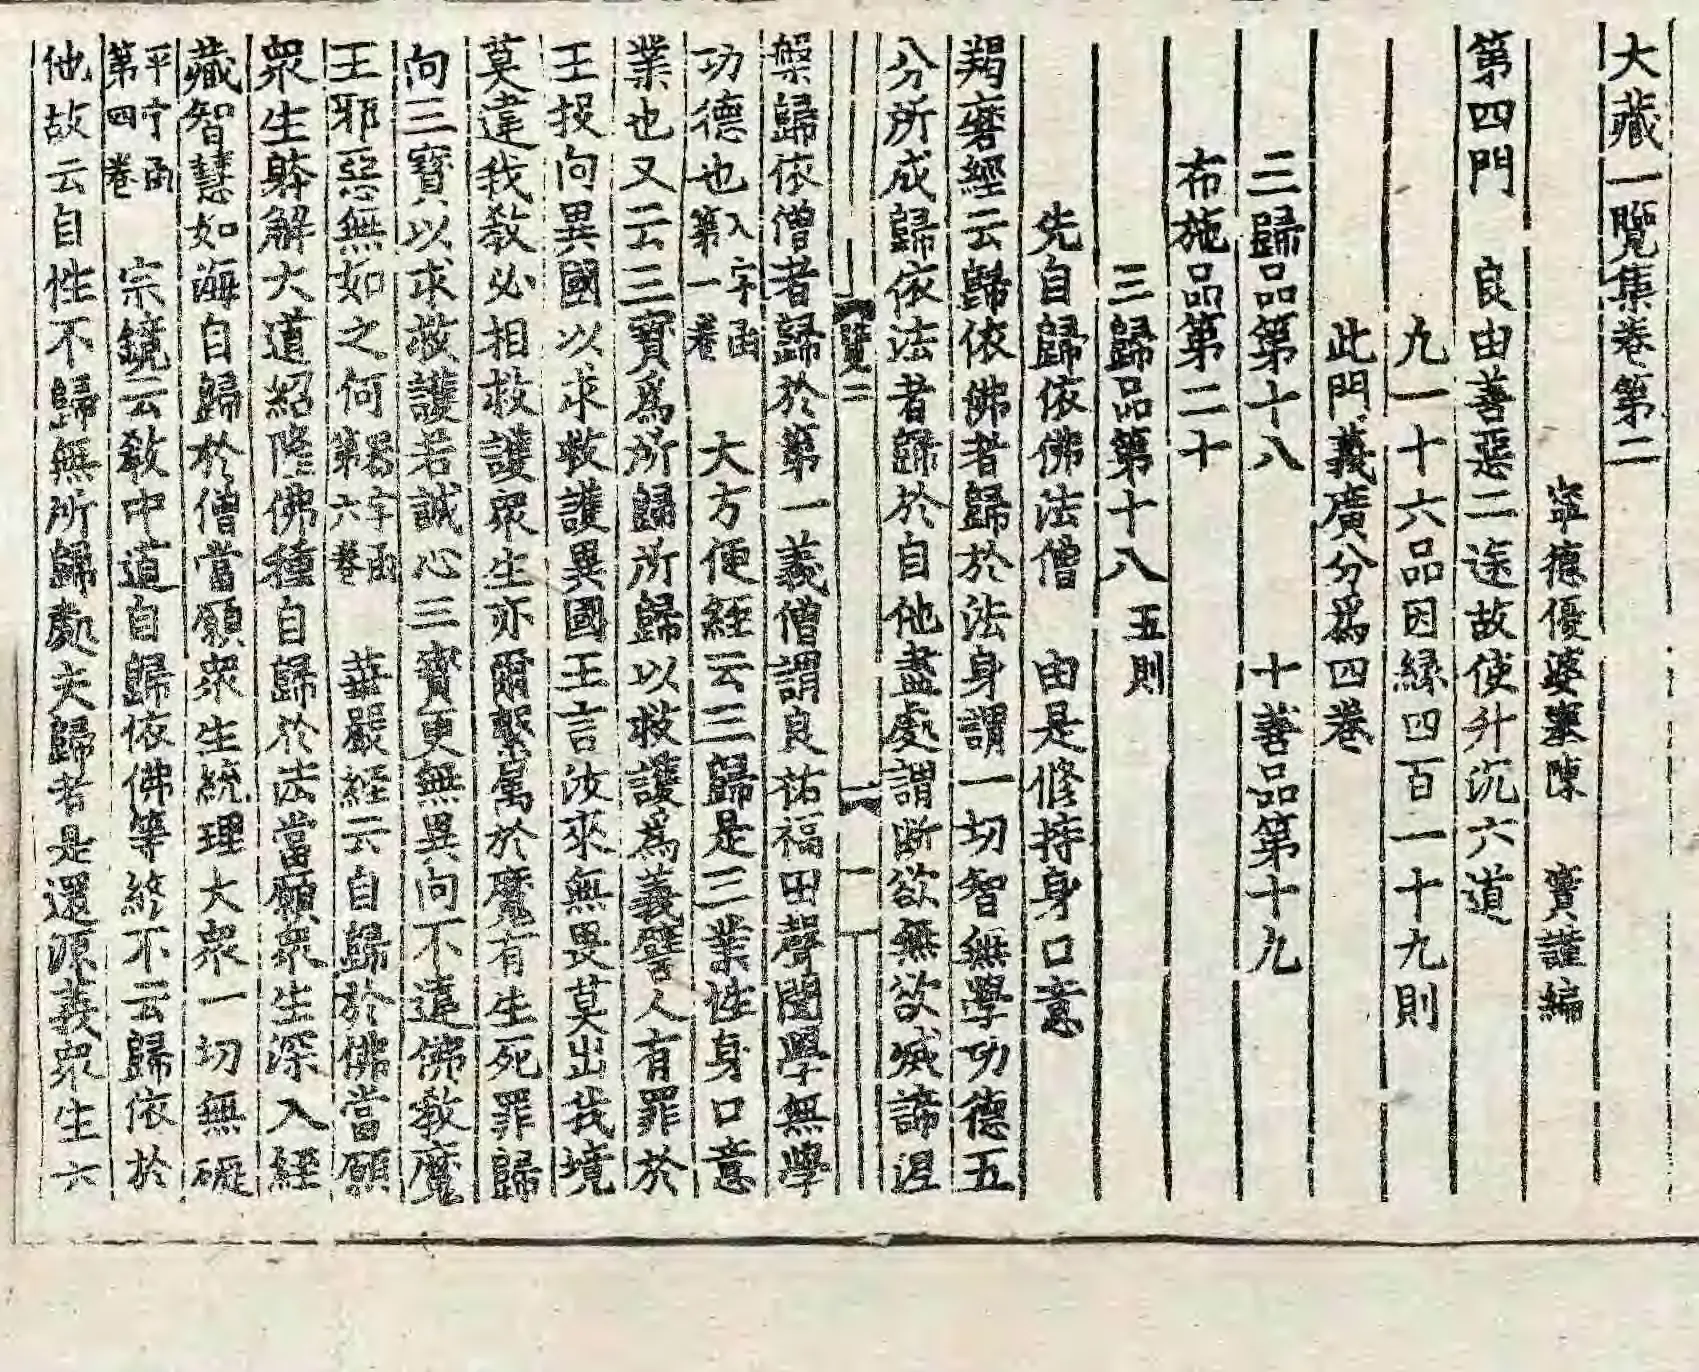 大藏一覽集卷第二
寧德優婆塞陳　實謹編
第四門　良由善惡二途故使升沉六道
九一十六品因縁四百一十九則
此門義廣分爲四卷
三歸品第十八　　　十善品第十九
布施品第二十
三歸品第十八 五則
先自歸依佛法僧　由是修持身口意
羯磨經云歸依佛者歸於法身謂一切智無學功德五
分所成歸依法者歸於自他盡處謂断欲無欲滅諦涅
覽二　二
槃歸依僧者歸於第一義僧謂良祐福田聲聞學無學
功德也入字函第一卷　大方便経云三歸是三業性身口意
業也又云三寳爲所歸所歸以救護爲義譬人有罪於
王投向異國以求救護異國王言汝來無畏莫出我境
莫違我教必相救護衆生亦爾繫属於魔有生死罪歸
向三寳以求救護若誠心三寳更無異向不違佛教魔
王邪惡無如之何第六卷　華嚴経云自歸於佛當願
衆生躰解大道紹隆佛種自歸於法當願衆生深入經
藏智慧如海自歸於僧當願衆生統理大衆一切無礙
平字函第四卷　宗鏡云教中道自歸依佛等終不云歸依於
他故云自性不歸無所歸處夫歸者是還源義衆生六